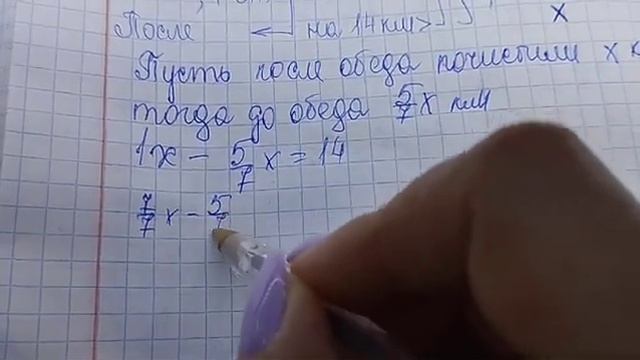 После ← на 14 км >
x
Пусть после обеда почистили x к
тогда до обеда 5/7 x км
1x - 5/7 x = 14
7/7 x - 5/7